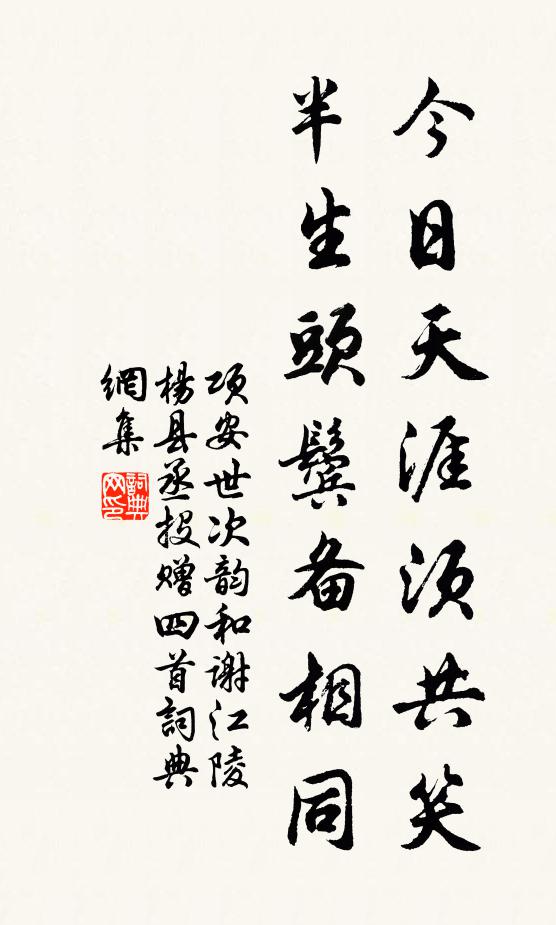 今日天涯须共笑
半生頭鬢备相同
项安世次韵和谢江陵
楊县丞投赠四首詞典
網集
詞典网印